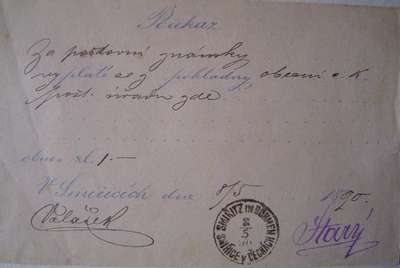 Poukaz
Za poštovní známky
vyplatí se z pokladny obecní c. k.
pošt. úřadu zde.
obnos zl. 1.—
V Smiřicích dne 8/5 1890.
SMIRITZ IN BÖHMEN
8
5
90
SMIŘICE V ČECHÁCH
Valášek
Starý